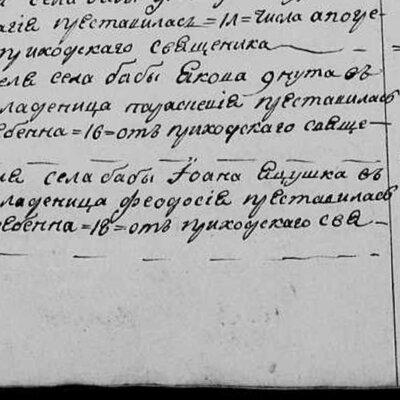 села бабы
агiя преставилась =11= числа апогре-
приходскаго священика
еля села бабы Якова днута въ
ладеница параскевiя преставилась
ебенна =16= отъ приходскаго свяще-
ля села бабы Иоана Яцушка въ
ладеница феодосiя преставилась
ребенна =18= отъ приходскаго свя-